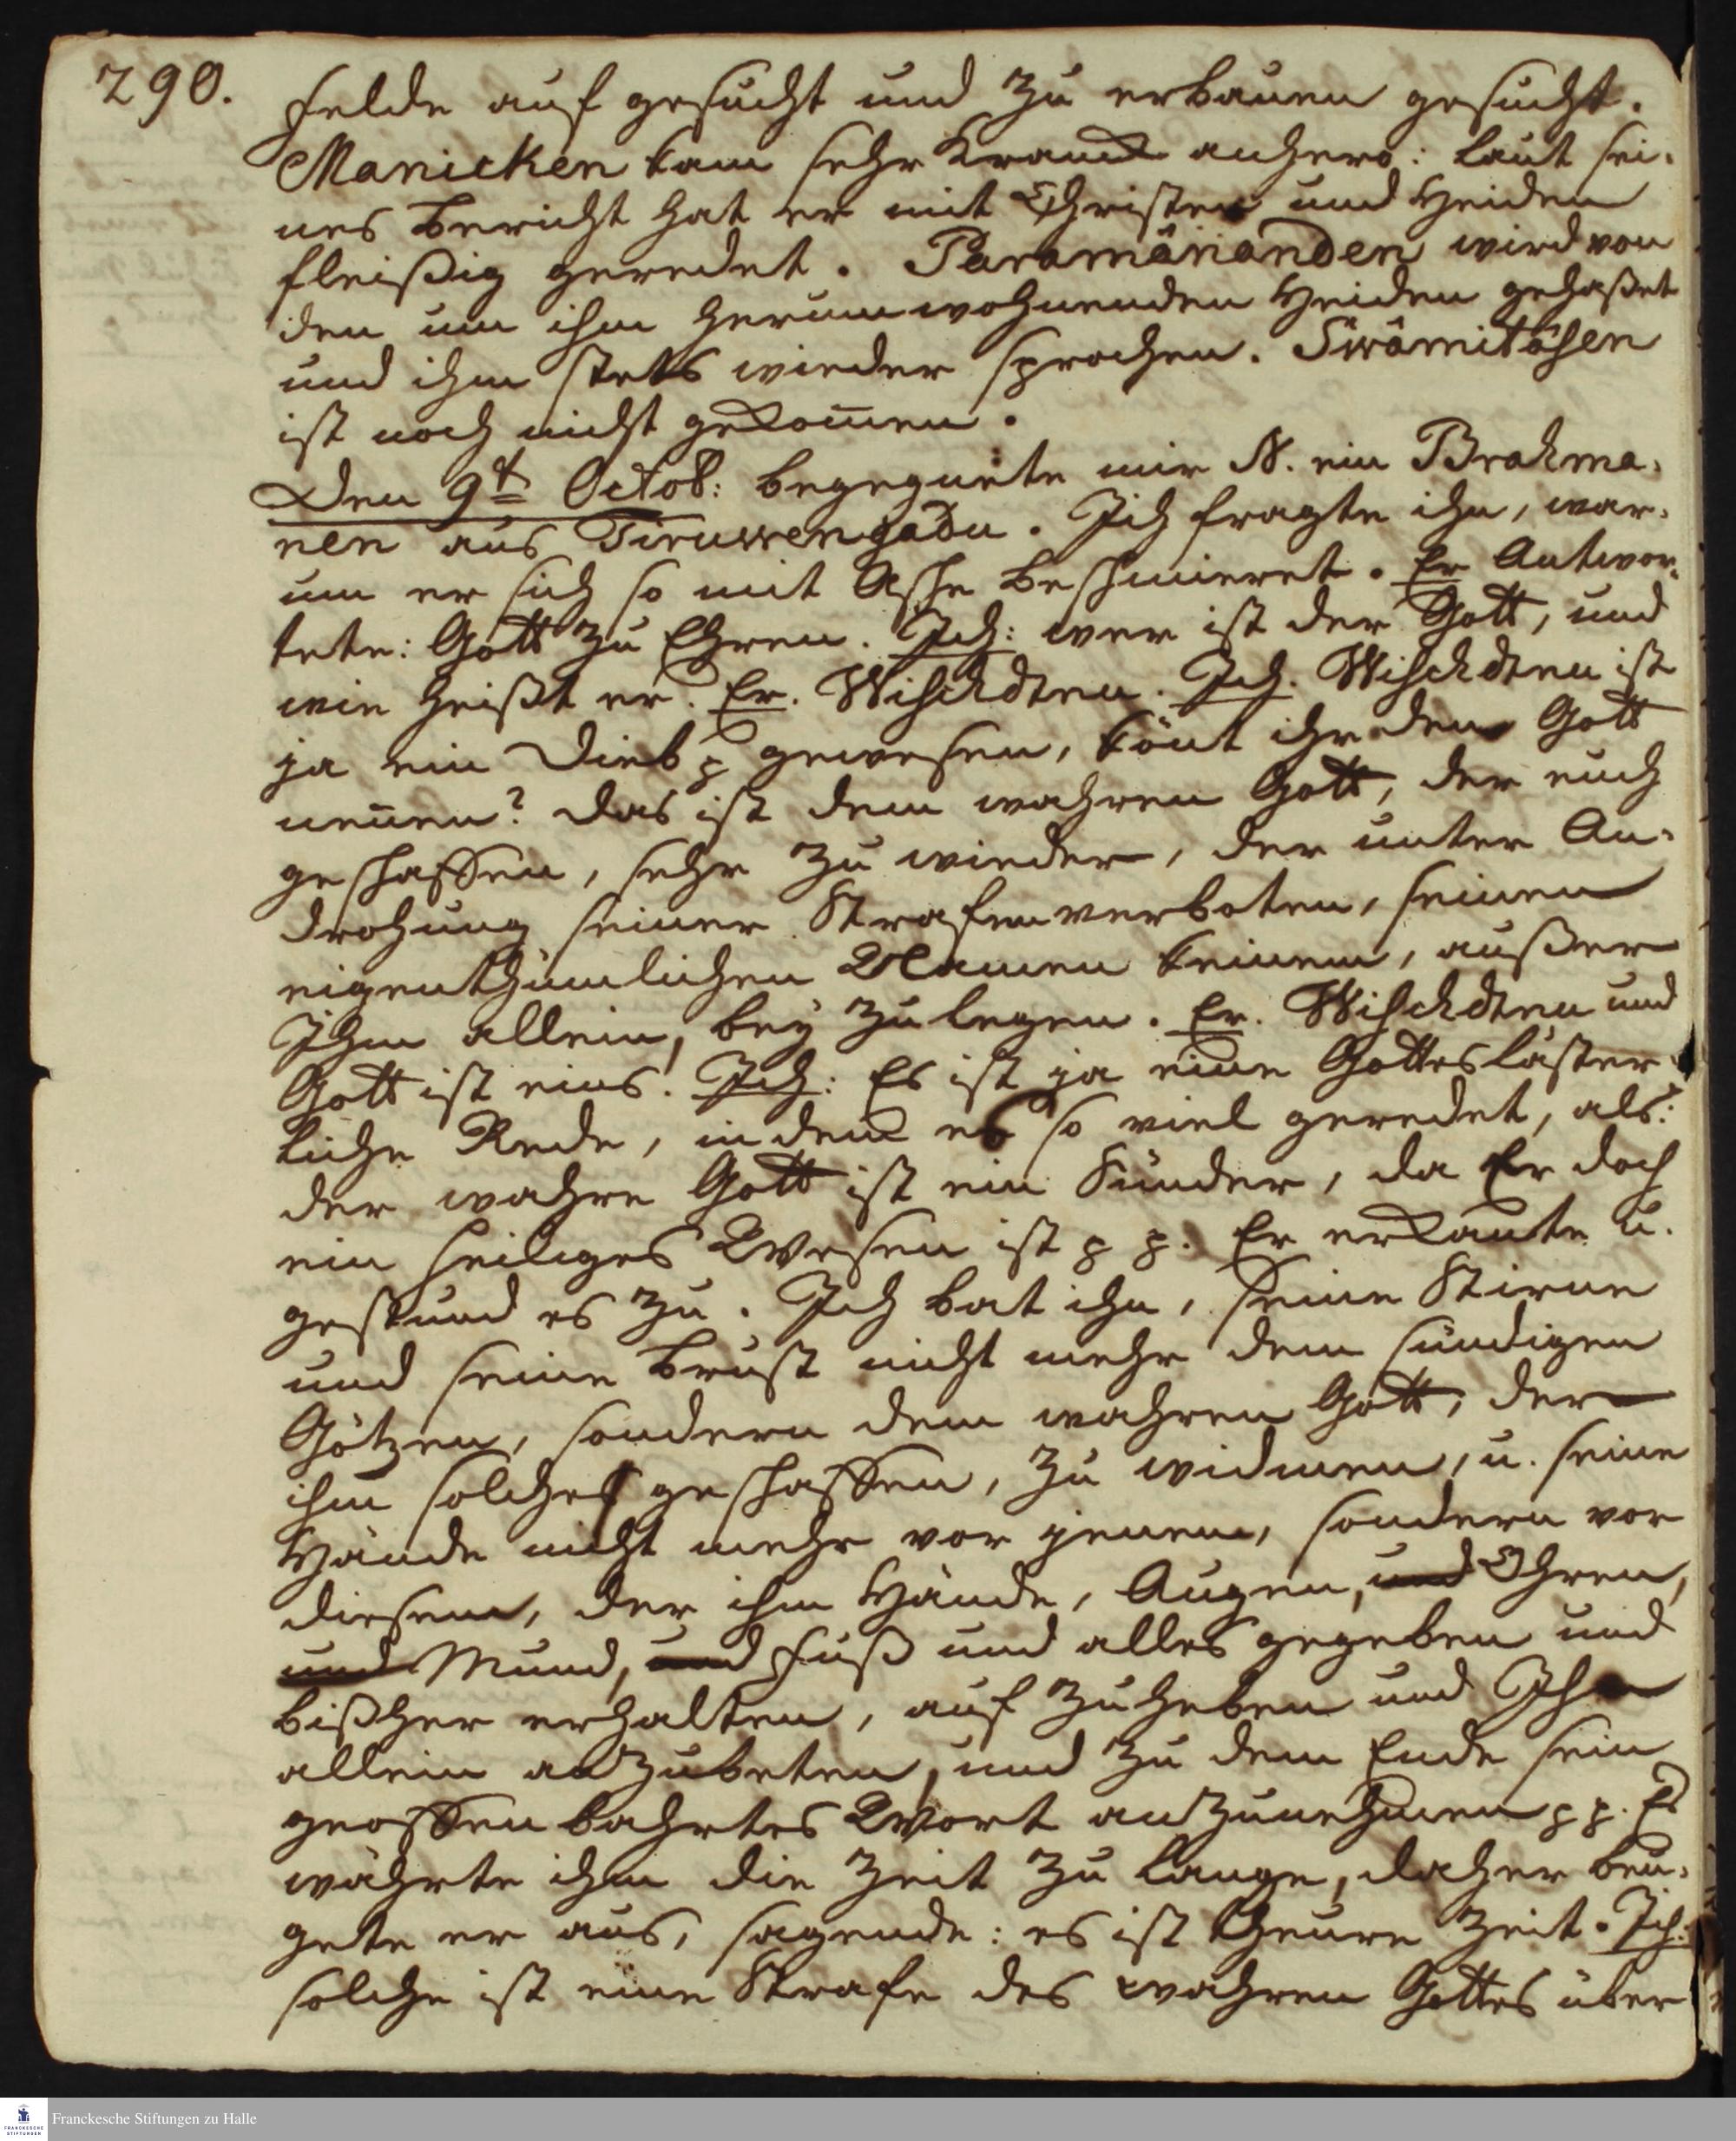 290.
Felde auf gesucht und zu erbauen gesucht.
Manicken kam sehr Kranck anhero: laut sei-
nes Bericht hat er mit Christen und Heiden
fleißig geredet. Paramânanden wird von
den um ihm herumwohnenden Heiden gehaßet
und ihm stets wieder sprochen. Swâmitâsen
ist noch nicht gekom̅en.
Den 9t Octob: begegnete mir N. ein Brahma-
nen aus Tiruwengadu. Ich fragte ihn, war-
um er sich so mit Asche beschmieret. Er Antwor-
tete: Gott zu Ehren. Ich: wer ist der Gott, und
wie heißt er. Er. Wischdtnu. Ich. Wischdtnu ist
ja ein Dieb p gewesen, könt ihr den Gott
nen̅en? das ist dem wahren Gott, der euch
geschaffen, sehr zu wieder, der unter An-
drohung seiner Strafen verboten, seinen
eigenthümlichen Namen keinem, außer
Ihm allein, bey zu legen. Er. Wischdtnu und
Gott ist eins. Ich: Es ist ja eine Gotteslaster
liche Rede, in dem es so viel geredet, als:
der wahre Gott ist ein Sünder, da Er doch
ein heiliges Wesen ist p p. Er erkante u.
gestund es zu. Ich bat ihn, seine Stirne
und seine Brust nicht mehr dem sündigen
Götzen, sondern dem wahren Gott, der
ihm solches geschaffen, zu widmen, u. seine
Hände nicht mehr vor jenem, sondern vor
diesem, der ihm Hände, Augen, und Ohren,
und Mund, und Fuß und alles gegeben und
bißher erhalten, auf zu heben und Ihn
allein anzubeten, und zu dem Ende sein
geoffenbahrtes Wort anzunehmen p p. Es
währte ihm die Zeit zu lange, daher beu-
gete er aus, sagende: es ist theure Zeit. Ich:
solche ist eine Strafe des wahren Gottes über
Franckesche Stiftungen zu Halle